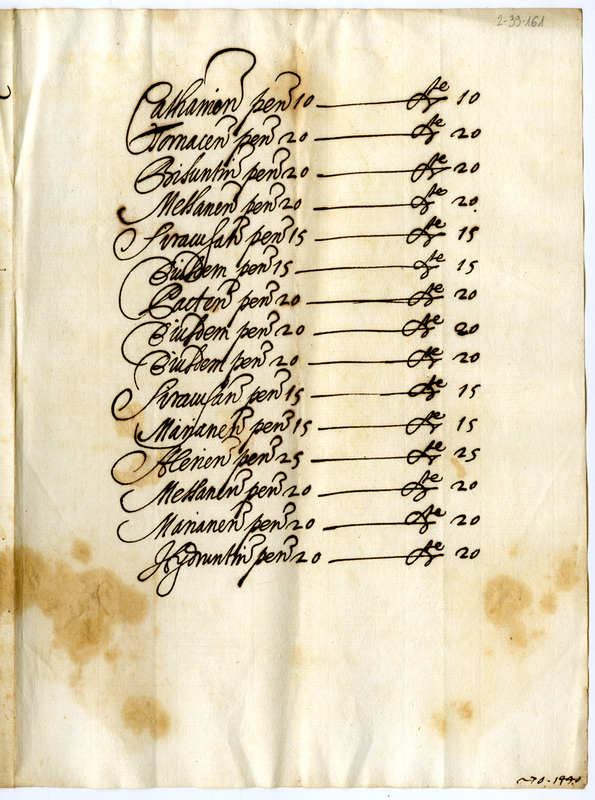 2-39-161
Cathanien pen 10 — 10
Tornacen pen 20 — 20
Bisuntin pen 20 — 20
Messanen pen 20 — 20
Siracusan pen 15 — 15
Eiusdem pen 15 — 15
Pacten pen 20 — 20
Eiusdem pen 20 — 20
Eiusdem pen 20 — 20
Siracusan pen 15 — 15
Marianen pen 15 — 15
Alerien pen 25 — 25
Messanen pen 20 — 20
Marianen pen 20 — 20
Hydruntin pen 20 — 20